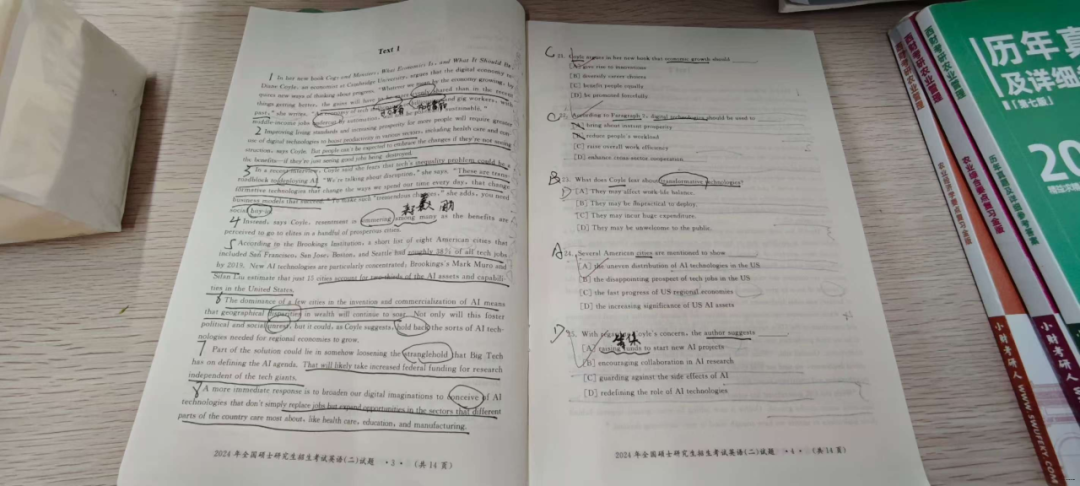 Text 1
1 In her new book Cogs and Monsters: What Economics Is, and What It Should Be,
Diane Coyle, an economist at Cambridge University, argues that the digital economy
new ways of thinking about progress. "Whatever we mean by the economy growing, by
things getting better, the gains will have to be more shared than in the recent
past," she writes. "An economy of tech gig workers, with
middle-income jobs
2 Improving living standards and increasing prosperity for more people will require greater
use of digital technologies to boost productivity in various sectors, including health care and
says Coyle. But people can't be expected to embrace the changes if they're not seeing
the benefits—if they're just seeing good jobs being destroyed.
3 In a recent interview, Coyle said she fears that tech's inequality problem could be a
roadblock to deploying AI. "We're talking about disruption," she says. "These are
technologies that change the ways we spend our time every day, that change
business models that succeed." To make such "tremendous changes," she adds, you need
social buy-in
4 Instead, says Coyle, resentment is simmering among many as the benefits are
perceived to go to elites in a handful of prosperous cities.
5 According to the Brookings Institution, a short list of eight American cities that
included San Francisco, San Jose, Boston, and Seattle had roughly 38% of all tech jobs
by 2019. New AI technologies are particularly concentrated: Brookings's Mark Muro and
Sifan Liu estimate that just 15 cities account for two-thirds of the AI assets and capabili-
ties in the United States.
6 The dominance of a few cities in the invention and commercialization of AI means
that geographical disparities in wealth will continue to soar. Not only will this foster
political and social unrest, but it could, as Coyle suggests, hold back the sorts of AI tech-
nologies needed for regional economies to grow.
7 Part of the solution could lie in somehow loosening the stranglehold that Big Tech
has on defining the AI agenda. That will likely take increased federal funding for research
independent of the tech giants.
8 A more immediate response is to broaden our digital imaginations to conceive of AI
technologies that don't simply replace jobs but expand opportunities in the sectors that different
parts of the country care most about, like health care, education, and manufacturing.
2024 年全国硕士研究生招生考试英语(二)试题 ·3· (共 14 页)
C 21. Coyle argues in her new book that economic growth should
[A] give rise to innovations
[B] diversify career choices
[C] benefit people equally
[D] be promoted forcefully
C 22. According to Paragraph 2, digital technologies should be used to
[A] bring about instant prosperity
[B] reduce people's workload
[C] raise overall work efficiency
[D] enhance cross-sector cooperation
B 23. What does Coyle fear about transformative technologies?
D [A] They may affect work-life balance.
[B] They may be impractical to deploy.
[C] They may incur huge expenditure.
[D] They may be unwelcome to the public.
A 24. Several American cities are mentioned to show
[A] the uneven distribution of AI technologies in the US
[B] the disappointing prospect of tech jobs in the US
[C] the fast progress of US regional economies
[D] the increasing significance of US AI assets
D 25. With regard to Coyle's concern, the author suggests
[A] raising funds to start new AI projects
[B] encouraging collaboration in AI research
[C] guarding against the side effects of AI
[D] redefining the role of AI technologies
2024 年全国硕士研究生招生考试英语(二)试题 ·4· (共 14 页)
历年真
及详细
(第七版)
20
小财考研人 WWW.SWUFEKY.COM
小财考研人